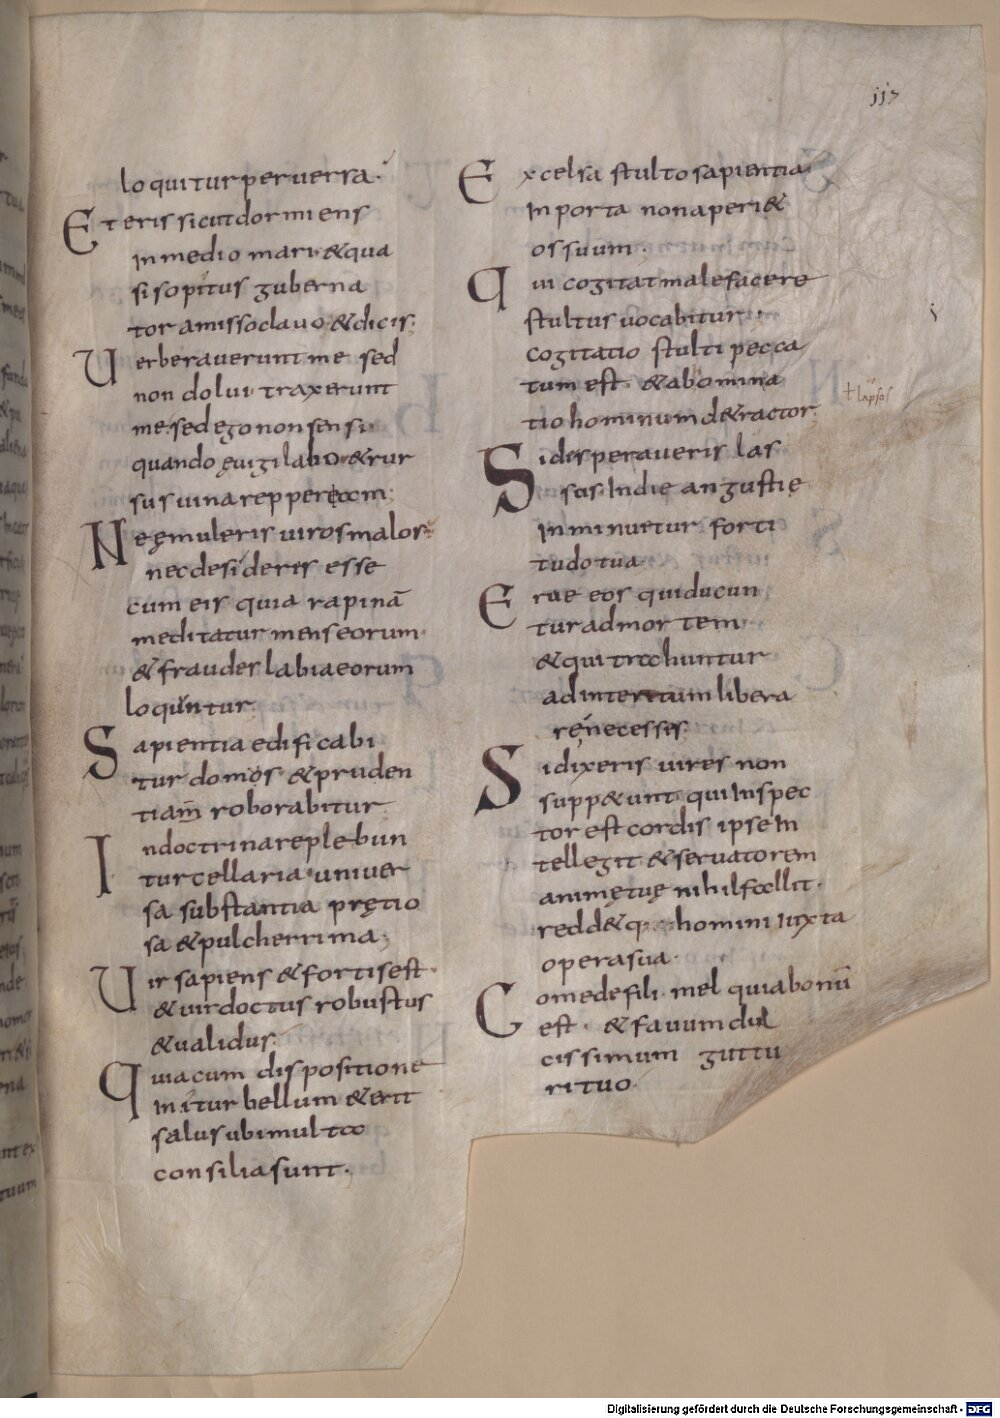 117
loquitur perversa.
Et eris sicut dormiens
in medio mari & qua
si sopitus guberna
tor amisso clauo & dicis;
Uerberauerunt me sed
non dolui traxerunt
me sed ego non sensi
quando euigilabo & rur
sus uina
Ne ęmuleris uiros malos
nec desideres esse
cum eis quia rapinā
meditatur mens eorum
& fraudes labia eorum
loquntur.
Sapientia edificabi
tur domos & pruden
tiam roborabitur
In doctrina replebun
tur cellaria uniuer
sa substantia prętio
sa & pulcherrima;
Uir sapiens & fortis est.
& uir doctus robustus
& ualidus.
Quia cum dispositione
initur bellum & erit
salus ubi multa
consilia sunt.
Excelsa stulto sapientia
in porta non aperi&
os suum.
Qui cogitat male facere
stultus uocabitur.
cogitatio stulti pecca
tum est. & abomina
tio hominum d&ractor.
Si desperaueris las
sus. In die angustię
inminuetur forti
tudo tua
Erue eos qui ducun
tur ad mortem
& qui trahuntur
ad interitum libera
re ne cesses.
Si dixeris uires non
supp&unt qui inspec
tor est cordis ipse in
tellegit & seruatorem
animę tuę nihil fallit.
redd& q homini iuxta
opera sua.
Comede fili mel quia bonū
est. & fauum dul
cissimum guttu
ri tuo.
lapsas
Digitalisierung gefördert durch die Deutsche Forschungsgemeinschaft - DFG